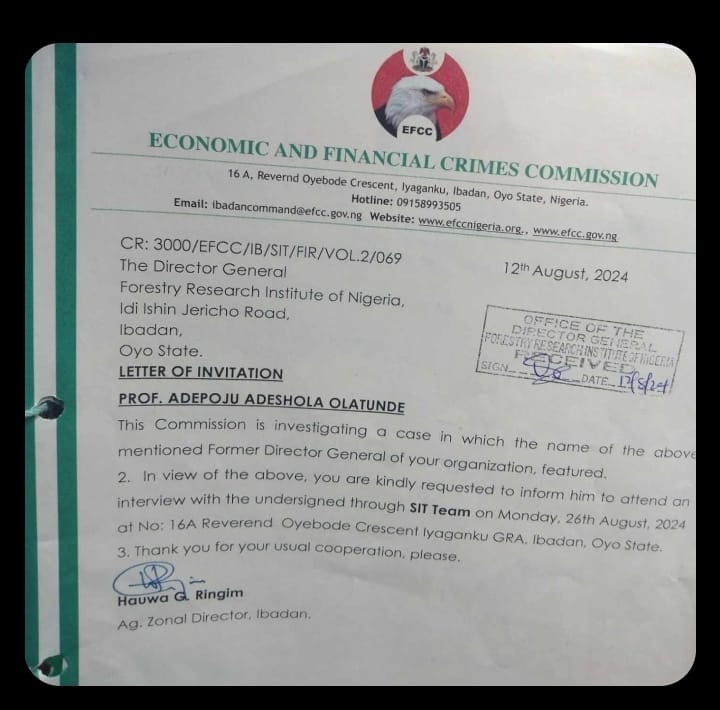 EFCC
ECONOMIC AND FINANCIAL CRIMES COMMISSION
16 A, Revernd Oyebode Crescent, Iyaganku, Ibadan, Oyo State, Nigeria.
Hotline: 09158993505
Email: ibadancommand@efcc.gov.ng Website: www.efccnigeria.org., www.efcc.gov.ng
CR: 3000/EFCC/IB/SIT/FIR/VOL.2/069
12th August, 2024
The Director General
Forestry Research Institute of Nigeria,
Idi Ishin Jericho Road,
Ibadan,
Oyo State.
OFFICE OF THE
DIRECTOR GENERAL
FORESTRY RESEARCH INSTITUTE OF NIGERIA
RECEIVED
SIGN DATE 12/8/24
LETTER OF INVITATION
PROF. ADEPOJU ADESHOLA OLATUNDE
This Commission is investigating a case in which the name of the above
mentioned Former Director General of your organization, featured.
2. In view of the above, you are kindly requested to inform him to attend an
interview with the undersigned through SIT Team on Monday, 26th August, 2024
at No: 16A Reverend Oyebode Crescent Iyaganku GRA. Ibadan, Oyo State.
3. Thank you for your usual cooperation, please.
Hauwa G. Ringim
Ag. Zonal Director, Ibadan.